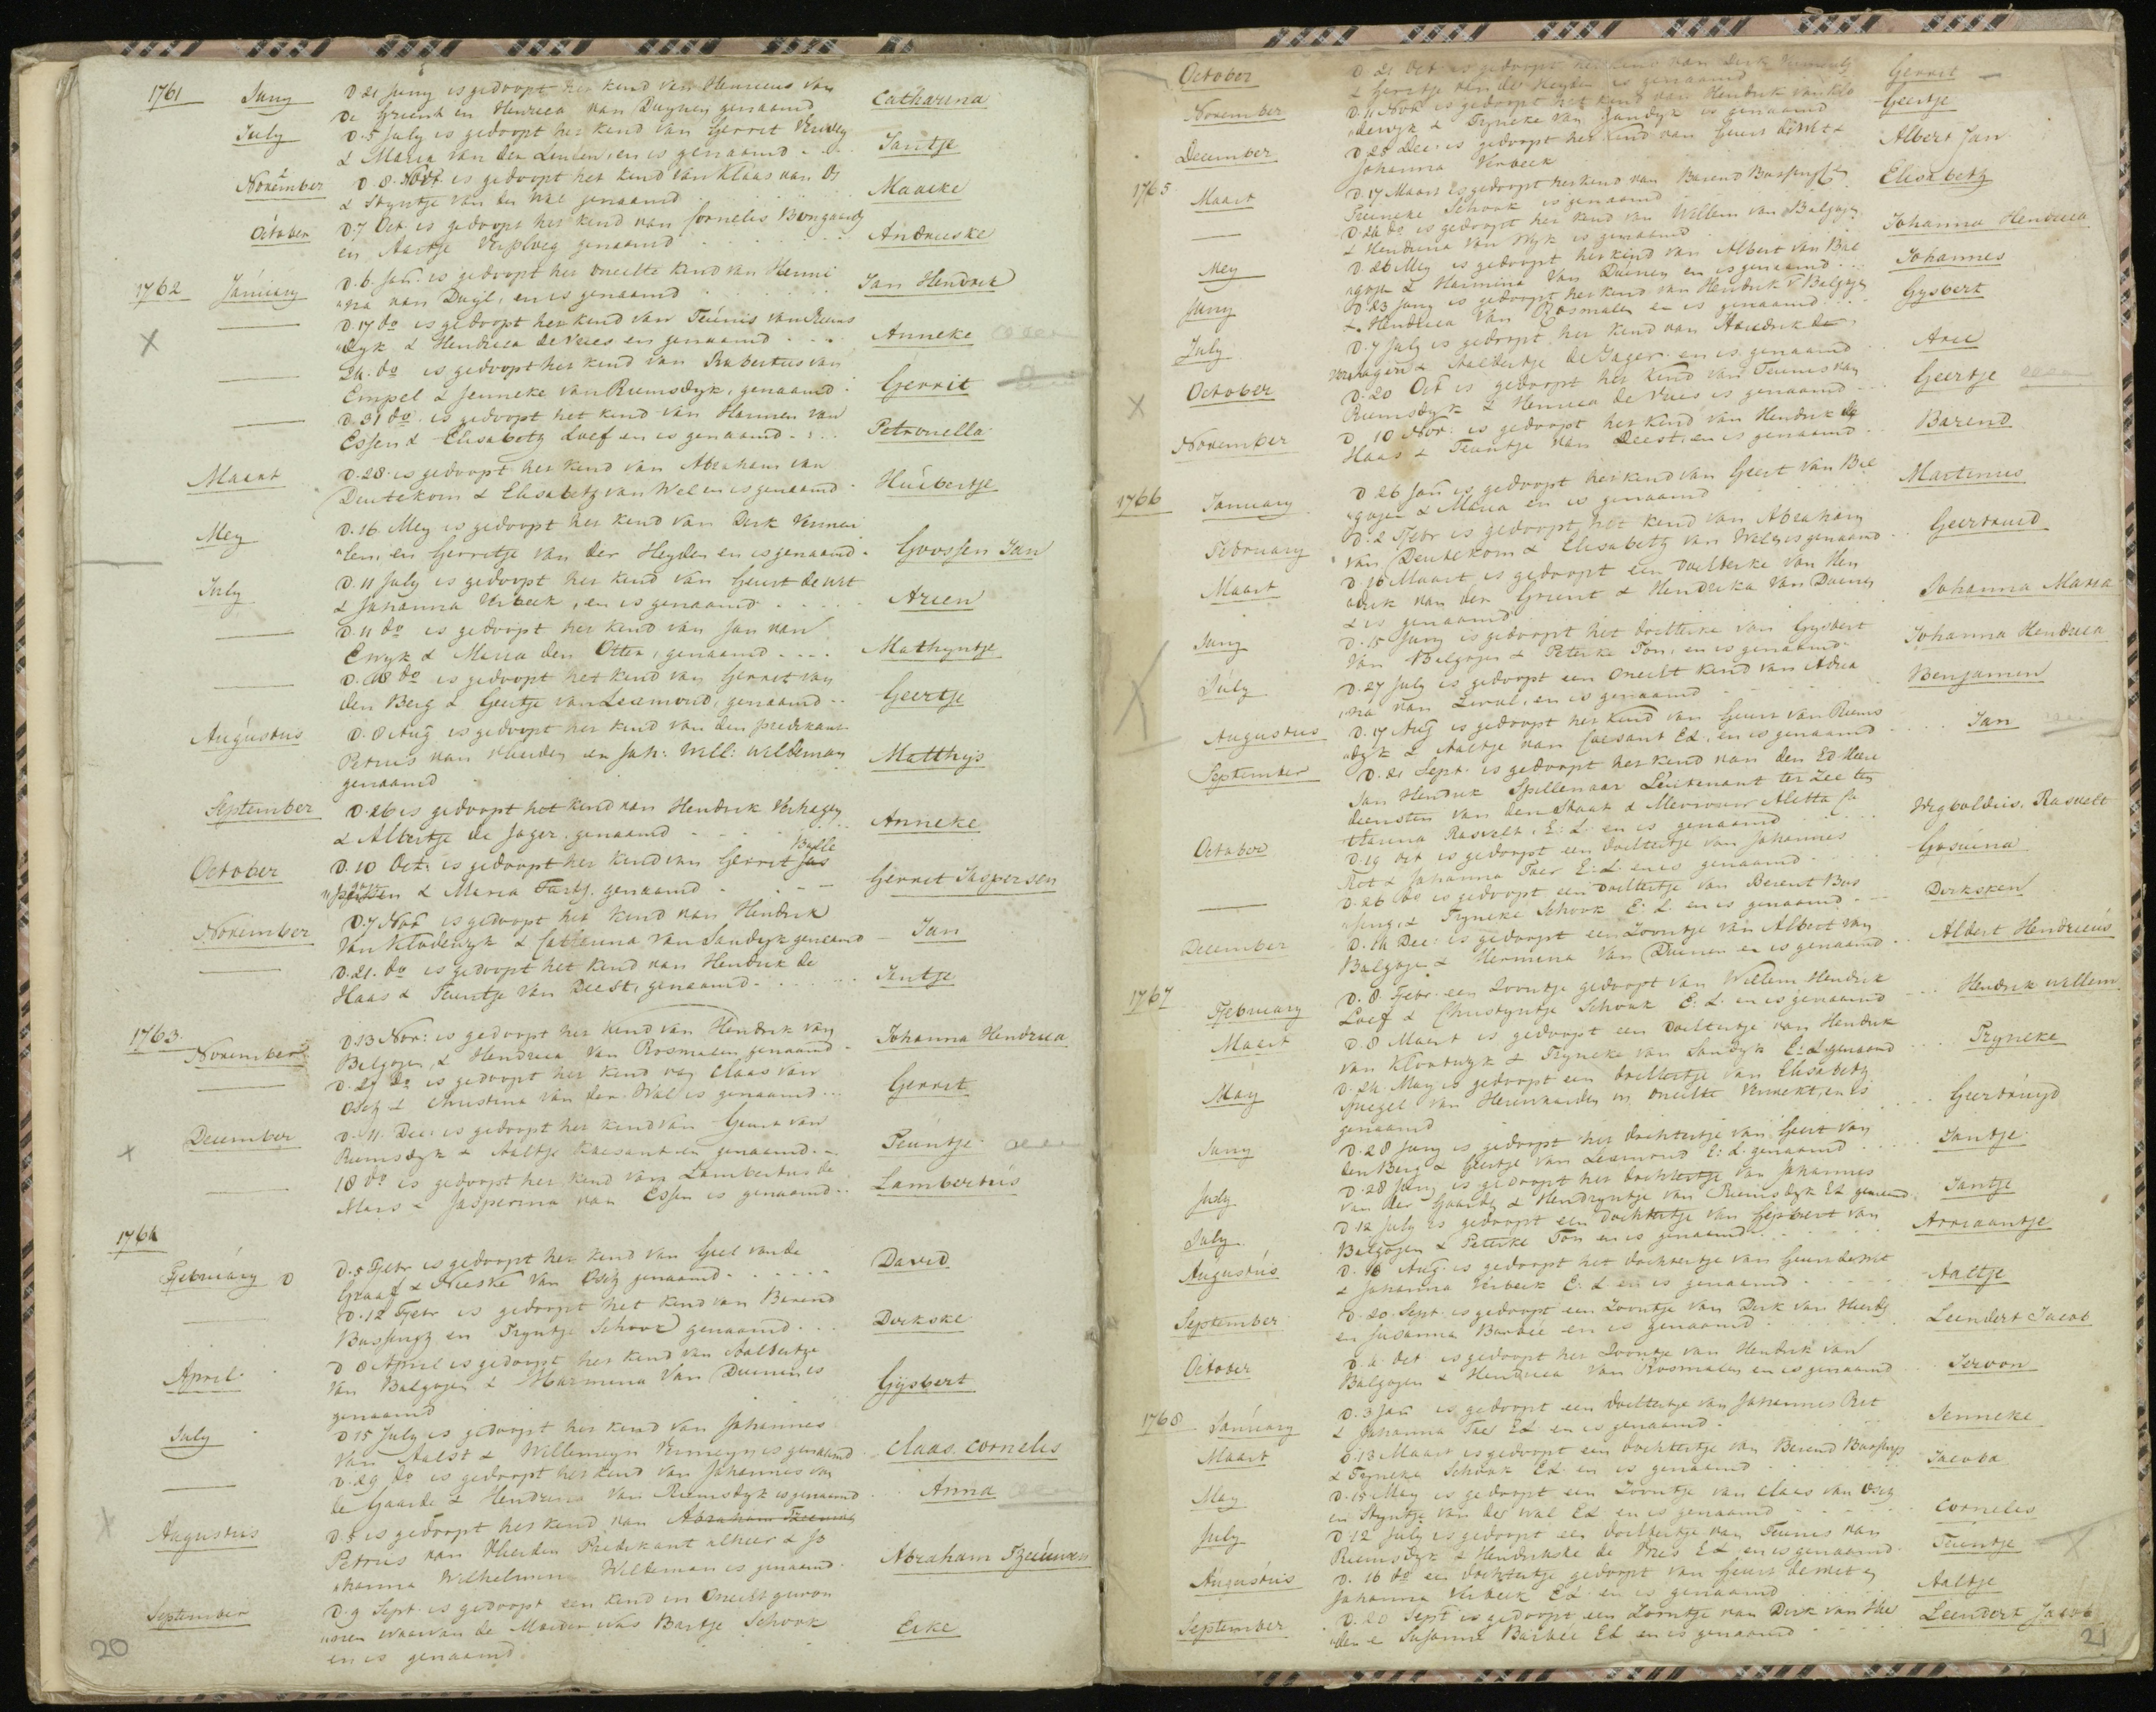 1761 Juny D 21 Juny is gedoopt het kend van Henricus van
de Grient en Henrica van Duynen genaamd Catharina
July D. 5 July is gedoopt het kend van Gerrit Verwey
& Maria van der Linden, en is genaamd Jantje
November D. 8. Nov is gedoopt het kend van Klaas van Os
& Styntje van der Wal genaamd Maaike
October D. 7 Oct. is gedoopt het kend van Cornelis Bongaards
en Aartje Verploeg genaamd Andrieske
1762 January D. 6. Jan. is gedoopt het onechte kend van Hermi
"na van Duyl, en is genaamd Jan Hendrik
D. 17 do is gedoopt het kend van Teunis van Riems
"dyk & Hendrica de Vries en genaamd Anneke
24. do is gedoopt het kend van Robertus van
Empel & Jenneke van Riemsdyk, genaamd Gerrit
D. 31 do. is gedoopt het kend van Harmen van
Essen & Elisabeth Loef en is genaamd Petronella
Maart D. 28. is gedoopt het kend van Abraham van
Deutekom & Elisabeth van Wel en is genaamd Huibertje
Mey D. 16 Mey is gedoopt het kend van Dirk Vermeu
"len, en Gerretje van der Heyden en is genaamd Goossen Jan
July D. 11 July is gedoopt het kend van Geurt de Wit
& Johanna Verbeek, en is genaamd Arien
D. 11 do is gedoopt het kend van Jan van
Ewyk & Maria den Otter, genaamd Mathyntje
D. 18 do is gedoopt het kend van Gerrit van
den Berg & Geertje van Leemond, genaamd Geertje
Augustus D. 8 Aug is gedoopt het kend van den predekant
Petrus van Rheeden en Joh: Will: Wildeman
genaamd Matthys
September D. 26 is gedoopt het kend van Hendrik Verhagen
& Albertje de Jager. genaamd Anneke
October D. 10 Oct: is gedoopt het kend van Gerrit Jas
& Maria genaamd Gerret Jaspersen
November D. 7 Nov is gedoopt het kend van Hendrik
van Kloderwyk & Catharina van Sandyk genaamd Jan
D. 21. do is gedoopt het kend van Hendrik de
Haas & Teuntje van Deest, genaamd Jentje
1763. November D. 13 Nov: is gedoopt het kend van Hendrik van
Balgojen & Hendrica van Rosmalen genaamd Johanna Hendrica
D. 27 do is gedoopt het kend van Claas van
Osch & Christina van der Wal is genaamd Gerrit
December D. 11. Dec: is gedoopt het kend van Geurt van
Riemsdyk & Aaltje Caesant en genaamd Teuntje
18 do is gedoopt het kend van Lambertus de
Maas & Jasperina van Essen is genaamd Lambertus
1764
February D D. 5 Febr is gedoopt het kend van Geel van de
Graaf & Neeske van Osch genaamd David
D. 12 Febr is gedoopt het kend van Barend
Bussingh en Tryntje Schook genaamd Dirkske
April D 8 April is gedoopt het kend van Aalbertze
van Balgojen & Harmina van Duinen is
genaamd Gijsbert
July D 15 July is gedoopt het kend van Johannes
van Aalst & Willemeyn Vermeyn is genaamd Claas. Cornelis
D. 29 do is gedoopt het kend van Johannes van
de Gaarde & Hendrina van Riemsdyk is genaamd Anna
Augustus D. 5 is gedoopt het kend van Abraham
Petrus van Rheeden Predekant alhier & Jo
"hanna Wilhelmina Wildeman is genaamd Abraham
September D. 9 Sept. is gedoopt een kend in Onecht gewon
"nen waarvan de Moeder was Bartje Schook
en is genaamd Eike
20
October D 21 Oct is gedoopt het kend van Dirk Vermeulen
& Gerretje van der Heyden is genaamd Gerrit
November D. 11 Nov is gedoopt het kend van Hendrik van Klo
"derwyk & Tryneke van Sandyk is genaamd Geertje
December D 23 Dec: is gedoopt het kend van Geurt de Wit &
Johanna Verbeek Albert Jan
1765 Maart D. 17 Maart is gedoopt het kend van Barend Bussingh
Trineke Schook is genaamd Elisabeth
D 24 do is gedoopt het kend van Willem van Balgojen
& Hendrina van Wyk is genaamd Johanna Hendrica
Mey D. 26 Mey is gedoopt het kind van Albert van Bal
"gojen & Harmina van Duinen en is genaamd Johannes
Juny D 23 Juny is gedoopt het kend van Hendrik v Balgojen
& Hendrica van Rosmalen en is genaamd Gysbert
July D. 7 July is gedoopt het kend van Hendrik de
Verhagen & Aalbertje de Jager en is genaamd Arie
October D. 20 Oct is gedoopt het kend van Teunis van
Riemsdyk & Henrica de Vries is genaamd Geertje
November D. 10 Nov: is gedoopt het kend van Hendrik de
Haas & Teuntje van Deest, en is genaamd Barend
1766 January D 26 Jan is gedoopt het kend van Geert van Bal
"gojen & Maria en is genaamd Martinus
February D. 2 Febr is gedoopt het kend van Abraham
van Deutekom & Elisabeth van Wel en is genaamd Geertruid
Maart D. 16 Maart is gedoopt een dochterke van Hen
"drik van der Grient & Hendrika van Duinen
& is genaamd Johanna Maria
Juny D. 15 Juny is gedoopt het dochterke van Gysbert
van Balgojen & Peterke Ton, en is genaamd Johanna Hendrica
July D. 27 July is gedoopt een Onecht kend van Adria
"na van Zwol, en is genaamd Benjamin
Augustus D. 17 Aug is gedoopt het kend van Geurt van Riems
"dyk & Aaltje van Caesant E.L. en is genaamd Jan
September D. 21 Sept. is gedoopt het kend van den Ed. Heere
Jan Hendrik Spillenaar Leutenant ter Zee ten
deensten van den Staat & Mevrouw Aletta Ca
tharina Rasvelt, E: L. en is genaamd Wigboldus. Rasvelt
October D. 19 oct is gedoopt een dochtertje van Johannes
Ret & Johanna Taer E. L. en is genaamd Gosuina
D. 26 do is gedoopt een dochtertje van Berent Bus
"sing, & Tryneke Schook E: L. en is genaamd Dirksken
December D. 14 Dec: is gedoopt een Zoontje van Albert van
Balgoje & Hermina van Duinen en is genaamd Albert Hendricus
1767 February D. 8 Febr: een Zoontje gedoopt van Willem Hendrik
Loef & Christyntje Schook E: L. en is genaamd Hendrik willem
Maart D. 8 Maart is gedoopt een dochtertje van Hendrik
van Klootwyk & Tryneke van Sandyk E: L. genaamd Tryneke
May D. 24. May is gedoopt een dochtertje van Elisabeth
Spiegel van Herwaarden in onechte verwekt, en is
genaamd Geertruyd
Juny D. 28 Juny is gedoopt het dochtertje van Geert van
den Berg & Geertje van Leemond E: L. genaamd Jantje
July D. 28 Juny is gedoopt het dochtertje van Johannes
van der Gaarde & Hendryntje van Riemsdyk EL genaamd Jantje
July D 12 July is gedoopt een dochtertje van Gijsbert van
Balgojen & Peterke Ton en is genaamd Arriaantje
Augustus D. 16 Aug. is gedoopt het dochtertje van Geurt de Wit
& Johanna Verbeek E: L en is genaamd Aaltje
September D. 20. Sept. is gedoopt een Zoontje van Dirk van Heerde
en Susanna Barbée en is genaamd Leendert Jacob
October D. 4 Oct is gedoopt het Zoontje van Hendrik van
Balgojen & Hendrica van Rosmalen en is genaamd Jeroon
1768 January D. 3 Jan is gedoopt een dochtertje van Johannes Ret
& Johanna Taer EL en is genaamd Jenneke
Maart D. 13 Maart is gedoopt een dochtertje van Berend Bussing
& Tryneke Schook EL. en is genaamd Jacoba
May D. 15 May is gedoopt een Zoontje van Claas van Osch
en Styntje van der Wal EL en is genaamd Cornelis
July D 12 July is gedoopt een dochtertje van Teunis van
Riemsdyk & Hendrikske de Vries EL en is genaamd Teuntje
Augustus D. 16 do een dochtertje gedoopt van Geurt de Wit en
Johanna Verbeek EL en is genaamd Aaltje
September D. 20 Sept is gedoopt een Zoontje van Dirk van Hee
"den & Susanna Barbée EL en is genaamd Leendert Jacob
21